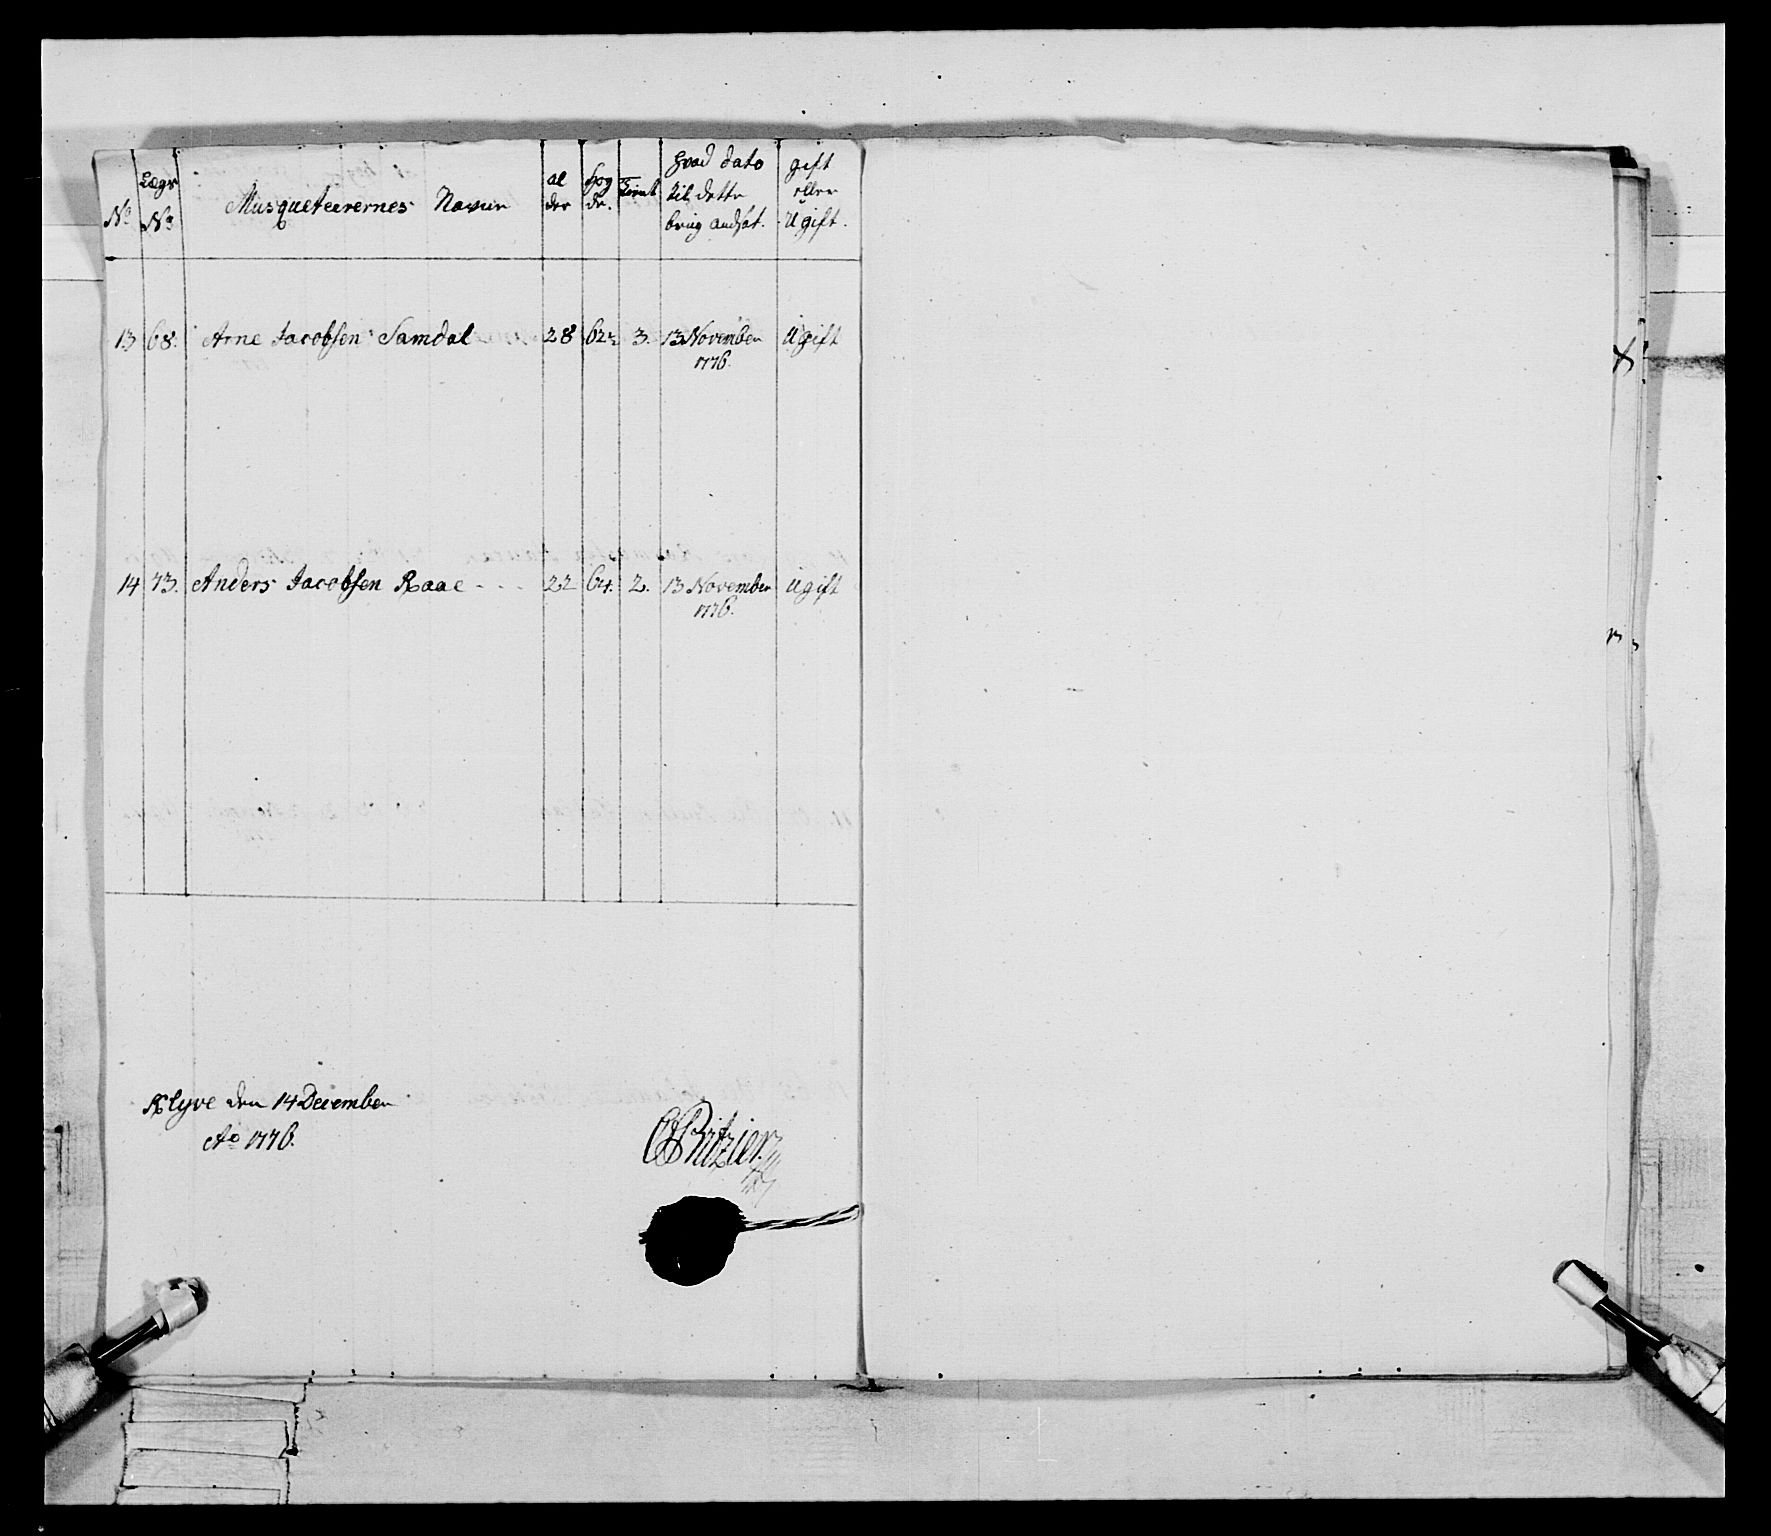 No Lægs No Musqueteerernes Navne al der Høy de. Tient Hvad dato til dette brug ansat. gift eller Ugift.
13 68. Arne Jacobsen Samdal 28 62½ 3. 13 November 1776. Ugift
14 73. Anders Jacobsen Raae - - - 22 64. 2. 13 November 1776. Ugift
Klyve den 14 December
Ao 1776.
Pritzier